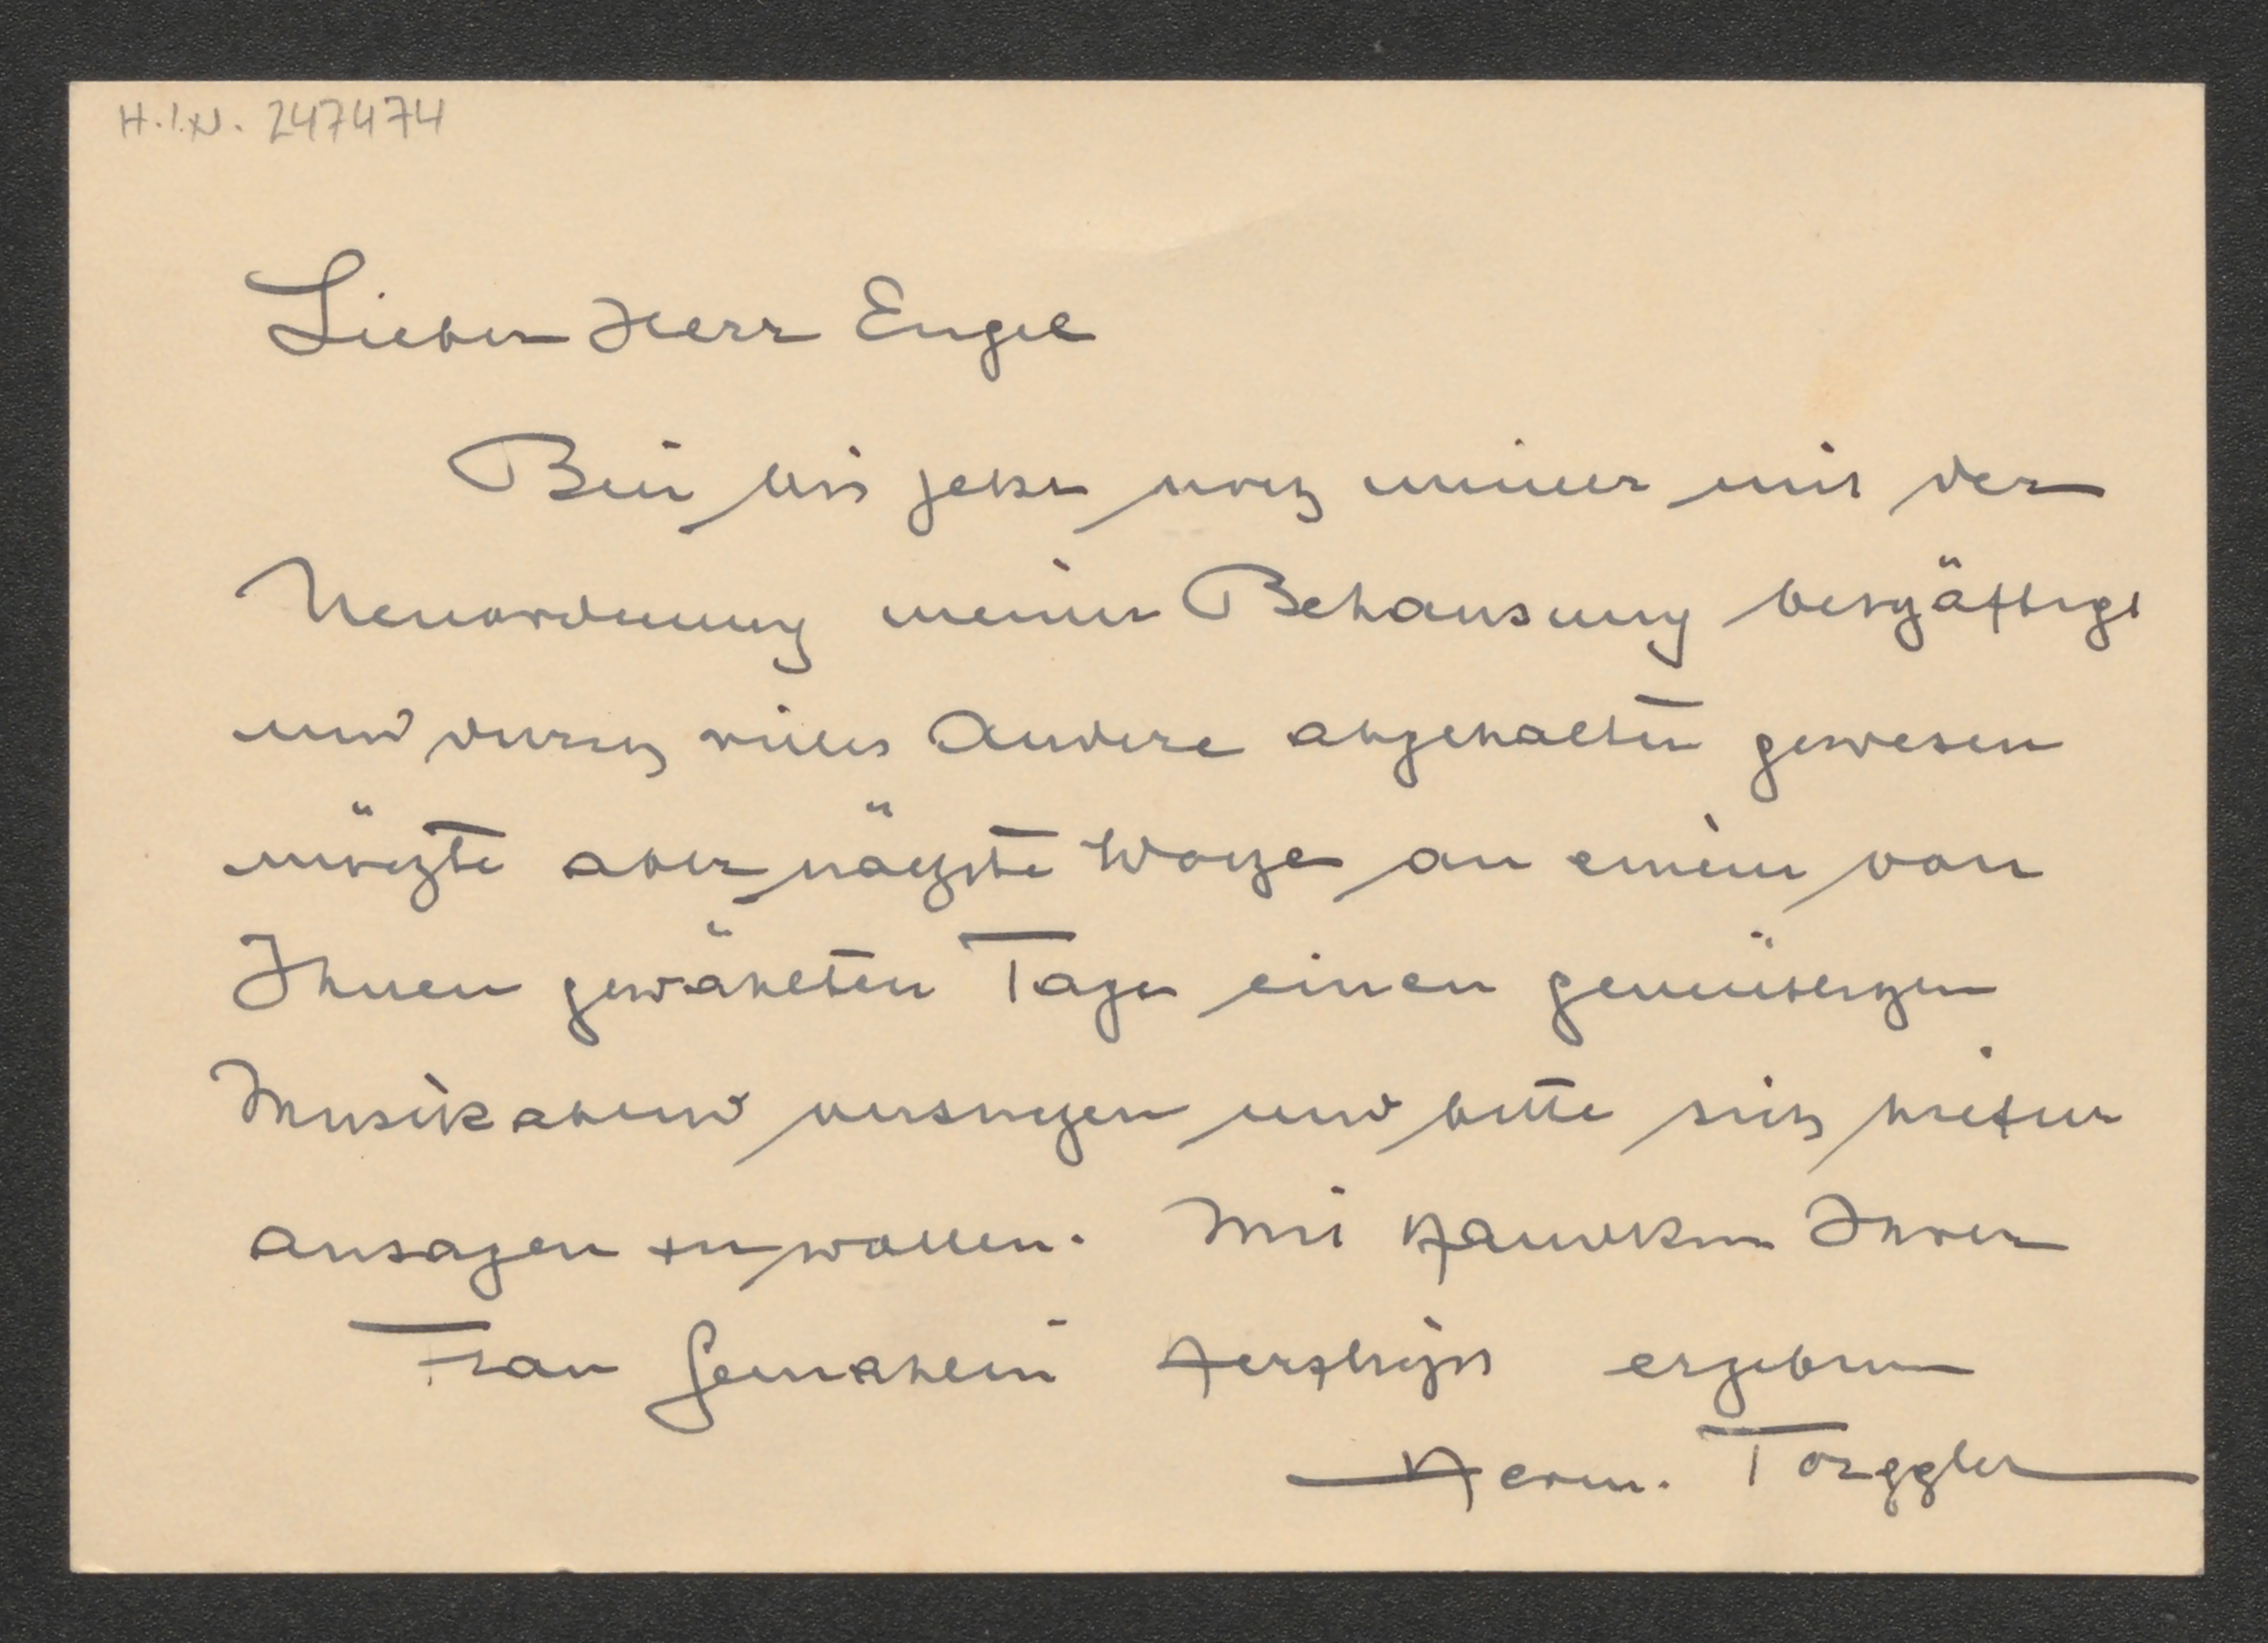 H.I.N. 247474
Lieber Herr Engel
Bin bis jetzt noch immer mit der
Neuordnung meiner Behausung beschäftigt
und durch vieles Andere abgehalten gewesen
möchte aber nächste Woche an einem von
Ihnen gewählten Tage einen gemütlichen
Musikabend versuchen und bitte sich hiefür
ansagen zu wollen. Mit Handkuss Ihrer
Frau Gemahlin herzlichst ergeben
Herm. Torggler